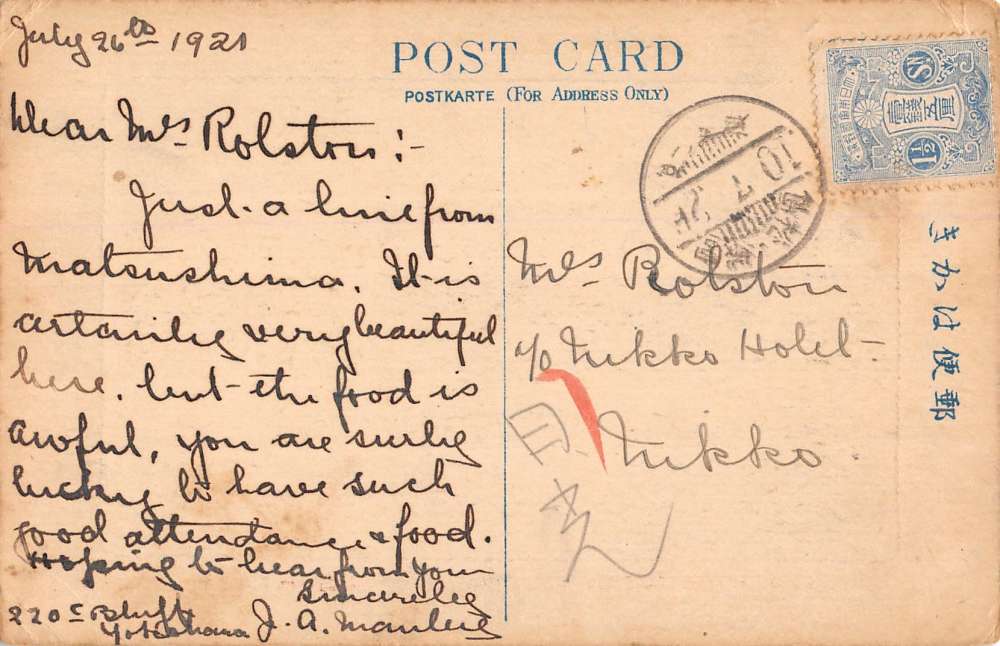 July 26th 1921
Dear Mrs Rolston:-
Just a line from
Matsushima. It is
certainly very beautiful
here, but the food is
awful, you are surely
lucky to have such
good attendance & food.
Hoping to hear from you
Sincerely
J. A.
220c Bluff
Yokohama
POST CARD
POSTKARTE (FOR ADDRESS ONLY)
1½ Sn
10 7
Mrs Rolston
c/o Nikko Hotel
Nikko
日光
郵便はかき